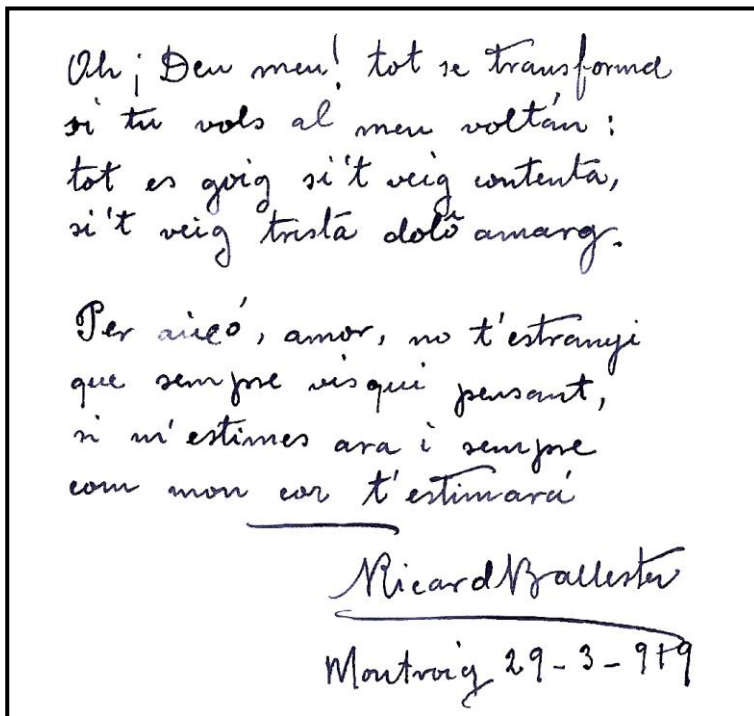 Oh ¡ Deu meu! tot se transforma
si tu vols al meu voltán:
tot es goig si't veig contenta,
si't veig trista doló amarg.
Per aixó, amor, no t'estranyi
que sempre visqui pensant,
si m'estimes ara i sempre
com mon cor t'estimará
Ricard Ballester
Montroig 29-3-919